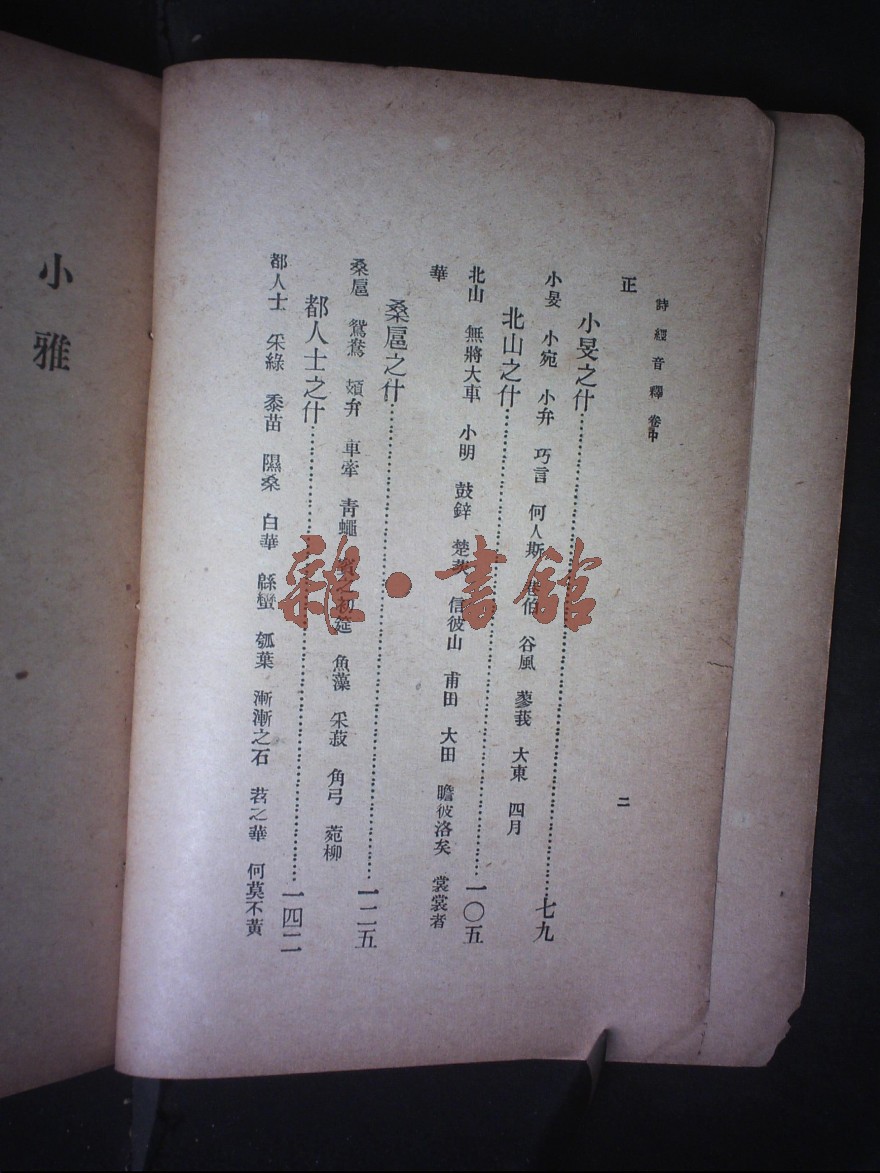 詩經音釋 卷中
正 二
小旻之什……………………七九
小旻 小宛 小弁 巧言 何人斯 巷伯 谷風 蓼莪 大東 四月
北山之什……………………一〇五
北山 無將大車 小明 鼓鋅 楚茨 信彼山 甫田 大田 瞻彼洛矣 裳裳者
華
桑扈之什……………………一二五
桑扈 鴛鴦 頍弁 車牽 青蠅 賓之初筵 魚藻 采菽 角弓 菀柳
都人士之什……………………一四二
都人士 采綠 黍苗 隰桑 白華 緜蠻 瓠葉 漸漸之石 苕之華 何莫不黃
小雅
雜·書館